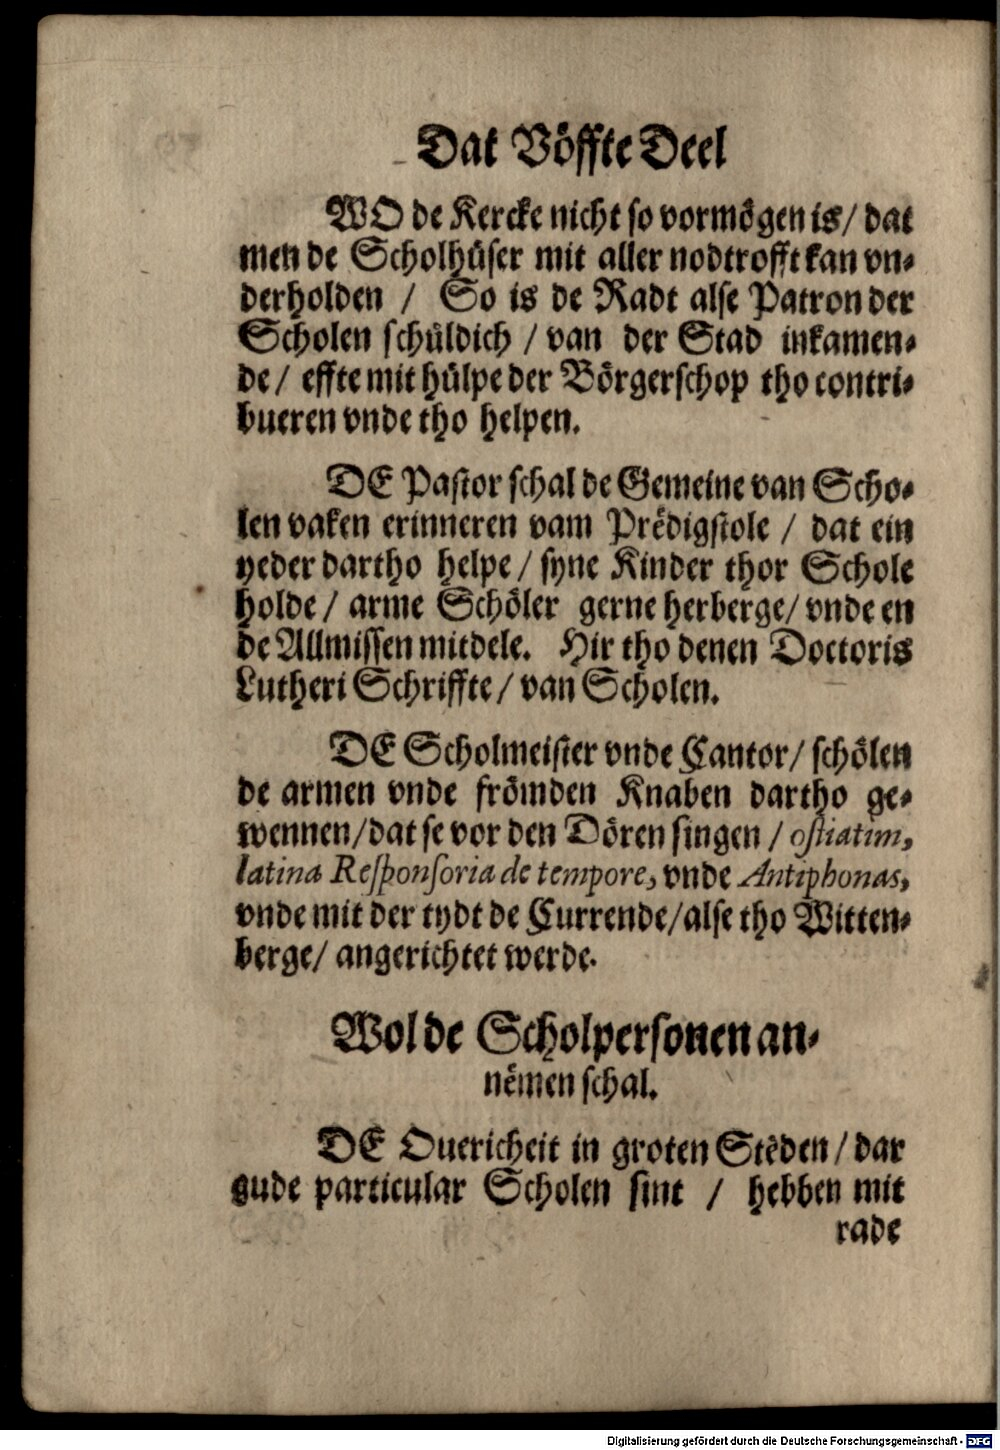 Dat Vöffte Deel
WO de Kercke nicht so vormögen is/ dat
men de Scholhüser mit aller nodtrofft kan vn-
derholden / So is de Radt alse Patron der
Scholen schüldich / van der Stad inkamen-
de/ effte mit hülpe der Börgerschop tho contri-
bueren vnde tho helpen.
DE Pastor schal de Gemeine van Scho-
len vaken erinneren vam Prëdigstole / dat ein
yeder dartho helpe/ syne Kinder thor Schole
holde/ arme Schöler gerne herberge/ vnde en
de Allmissen mitdele. Hir tho denen Doctoris
Lutheri Schriffte/ van Scholen.
DE Scholmeister vnde Cantor/ schölen
de armen vnde frömden Knaben dartho ge-
wennen/dat se vor den Dören singen / ostiatim,
latina Responsoria de tempore, vnde Antiphonas,
vnde mit der tydt de Currende/alse tho Witten-
berge/ angerichtet werde.
Wol de Scholpersonen an-
nëmen schal.
DE Ouericheit in groten Stëden/ dar
gude particular Scholen sint / hebben mit
rade
Digitalisierung gefördert durch die Deutsche Forschungsgemeinschaft - DFG